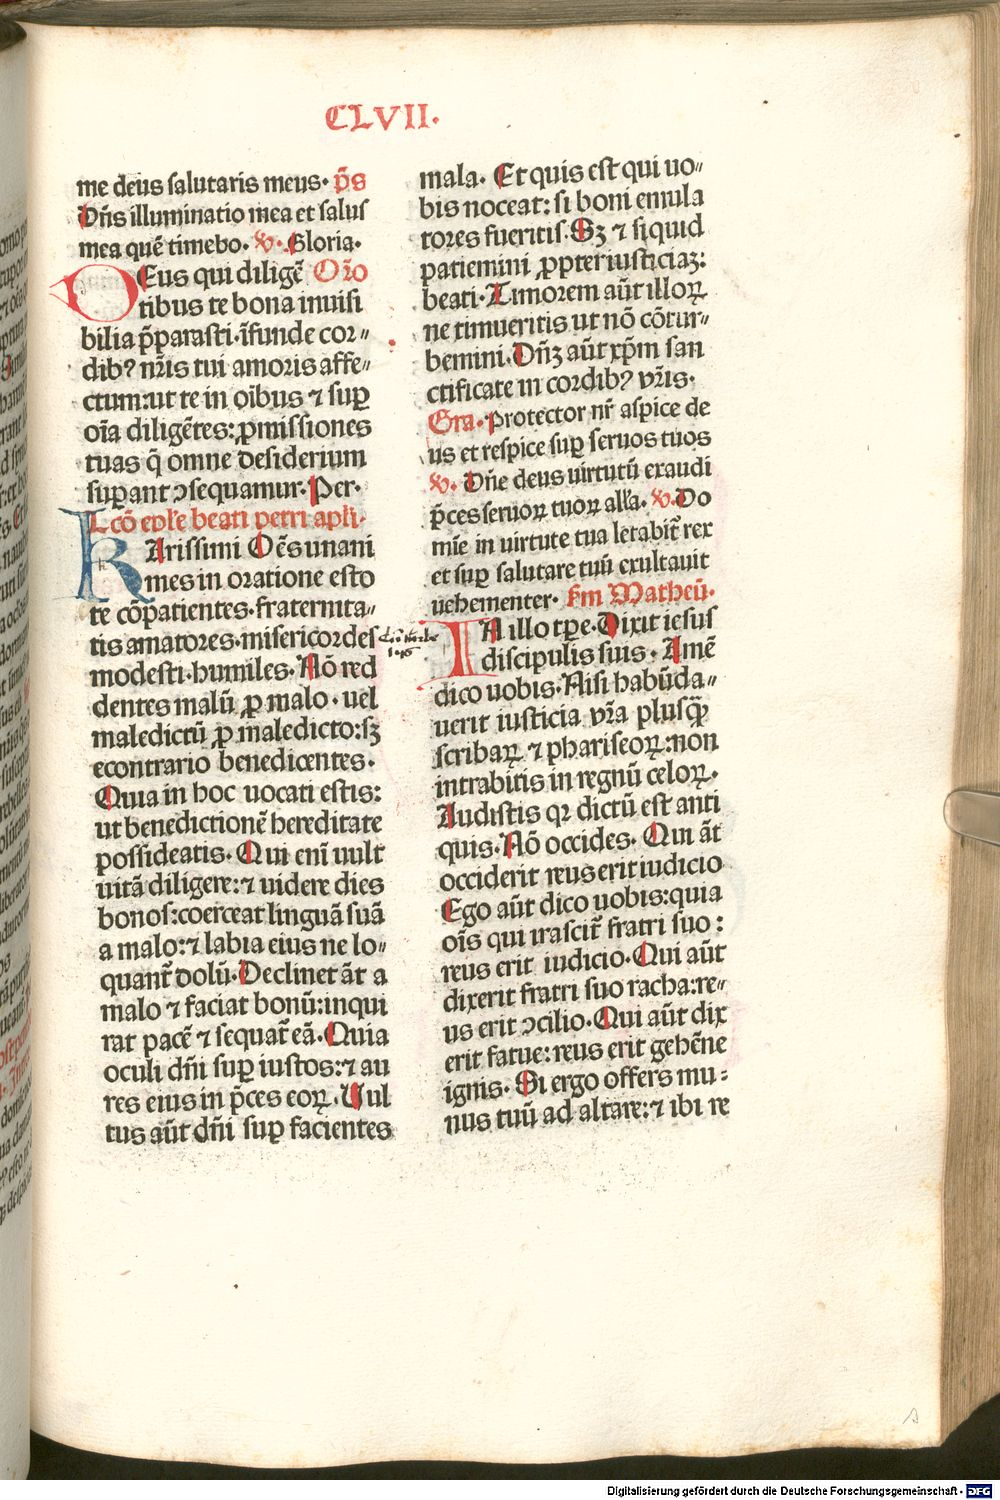 CLVII.
me deus salutaris meus. p̃s
Dñs illuminatio mea et salus
mea quẽ timebo. v̾. Gloria.
DEus qui diligẽ Orõ
tibus te bona inuisi
bilia p̃parasti. ĩfunde cor⸗
dibꝰ nr̃is tui amoris affe⸗
ctum: ut te in oĩbus ⁊ suꝑ
oĩa diligẽtes: ꝓmissiones
tuas q̃ omne desiderium
suꝑant ↄsequamur. Per.
Lcõ epl̃e beati petri apl̃i.
KArissimi Oẽs unani
mes in oratione esto
te cõpatientes. fraternita⸗
tis amatores. misericordes
modesti. humiles. Nõ red
dentes malũ ꝓ malo. uel
maledictũ ꝓ maledicto: sꝫ
econtrario benedicentes.
Quia in hoc uocati estis:
ut benedictionẽ hereditate
possideatis. Qui eni͂ uult
uitã diligere: ⁊ uidere dies
bonos: coerceat linguã suã
a malo: ⁊ labia eius ne lo⸗
quant̃ dolũ. Declinet ãt a
malo ⁊ faciat bonũ: inqui
rat pacẽ ⁊ sequat̃ eã. Quia
oculi dñi suꝑ iustos: ⁊ au
res eius in p̃ces eoꝝ. Uul
tus aũt dñi suꝑ facientes
mala. Et quis est qui uo⸗
bis noceat: si boni emula
tores fueritis. Sꝫ ⁊ siquid
patiemini ꝓpter iusticiaꝫ:
beati. Timorem aũt illoꝝ
ne timueritis ut nõ cõtur⸗
bemini. Dñꝫ aũt xp̃m san
ctificate in cordibꝰ vr̃is.
Gra. Protector nr̃ aspice de
us et respice suꝑ seruos tuos
v̾. Dñe deus uirtutũ exaudi
p̃ces seruoꝝ tuoꝝ all̃a. v̾. Do
mĩe in uirtute tua letabit̃ rex
et suꝑ salutare tuũ exultauit
uehementer. ẜm Matheũ.
IN illo tꝑe. Dixit iesus
discipulis suis. Amẽ
dico uobis. Nisi habũda⸗
uerit iusticia vr̃a plusꝗ̃
scribaꝝ ⁊ phariseoꝝ: non
intrabitis in regnũ celoꝝ.
Audistis qꝛ dictũ est anti
quis. Nõ occides. Qui ãt
occiderit reus erit iudicio
Ego aũt dico uobis: quia
oĩs qui irascit̃ fratri suo:
reus erit iudicio. Qui aũt
dixerit fratri suo racha: re⸗
us erit ↄcilio. Qui aũt dix
erit fatue: reus erit gehẽne
ignis. Si ergo offers mu⸗
nus tuũ ad altare: ⁊ ibi re
Digitalisierung gefördert durch die Deutsche Forschungsgemeinschaft - DFG